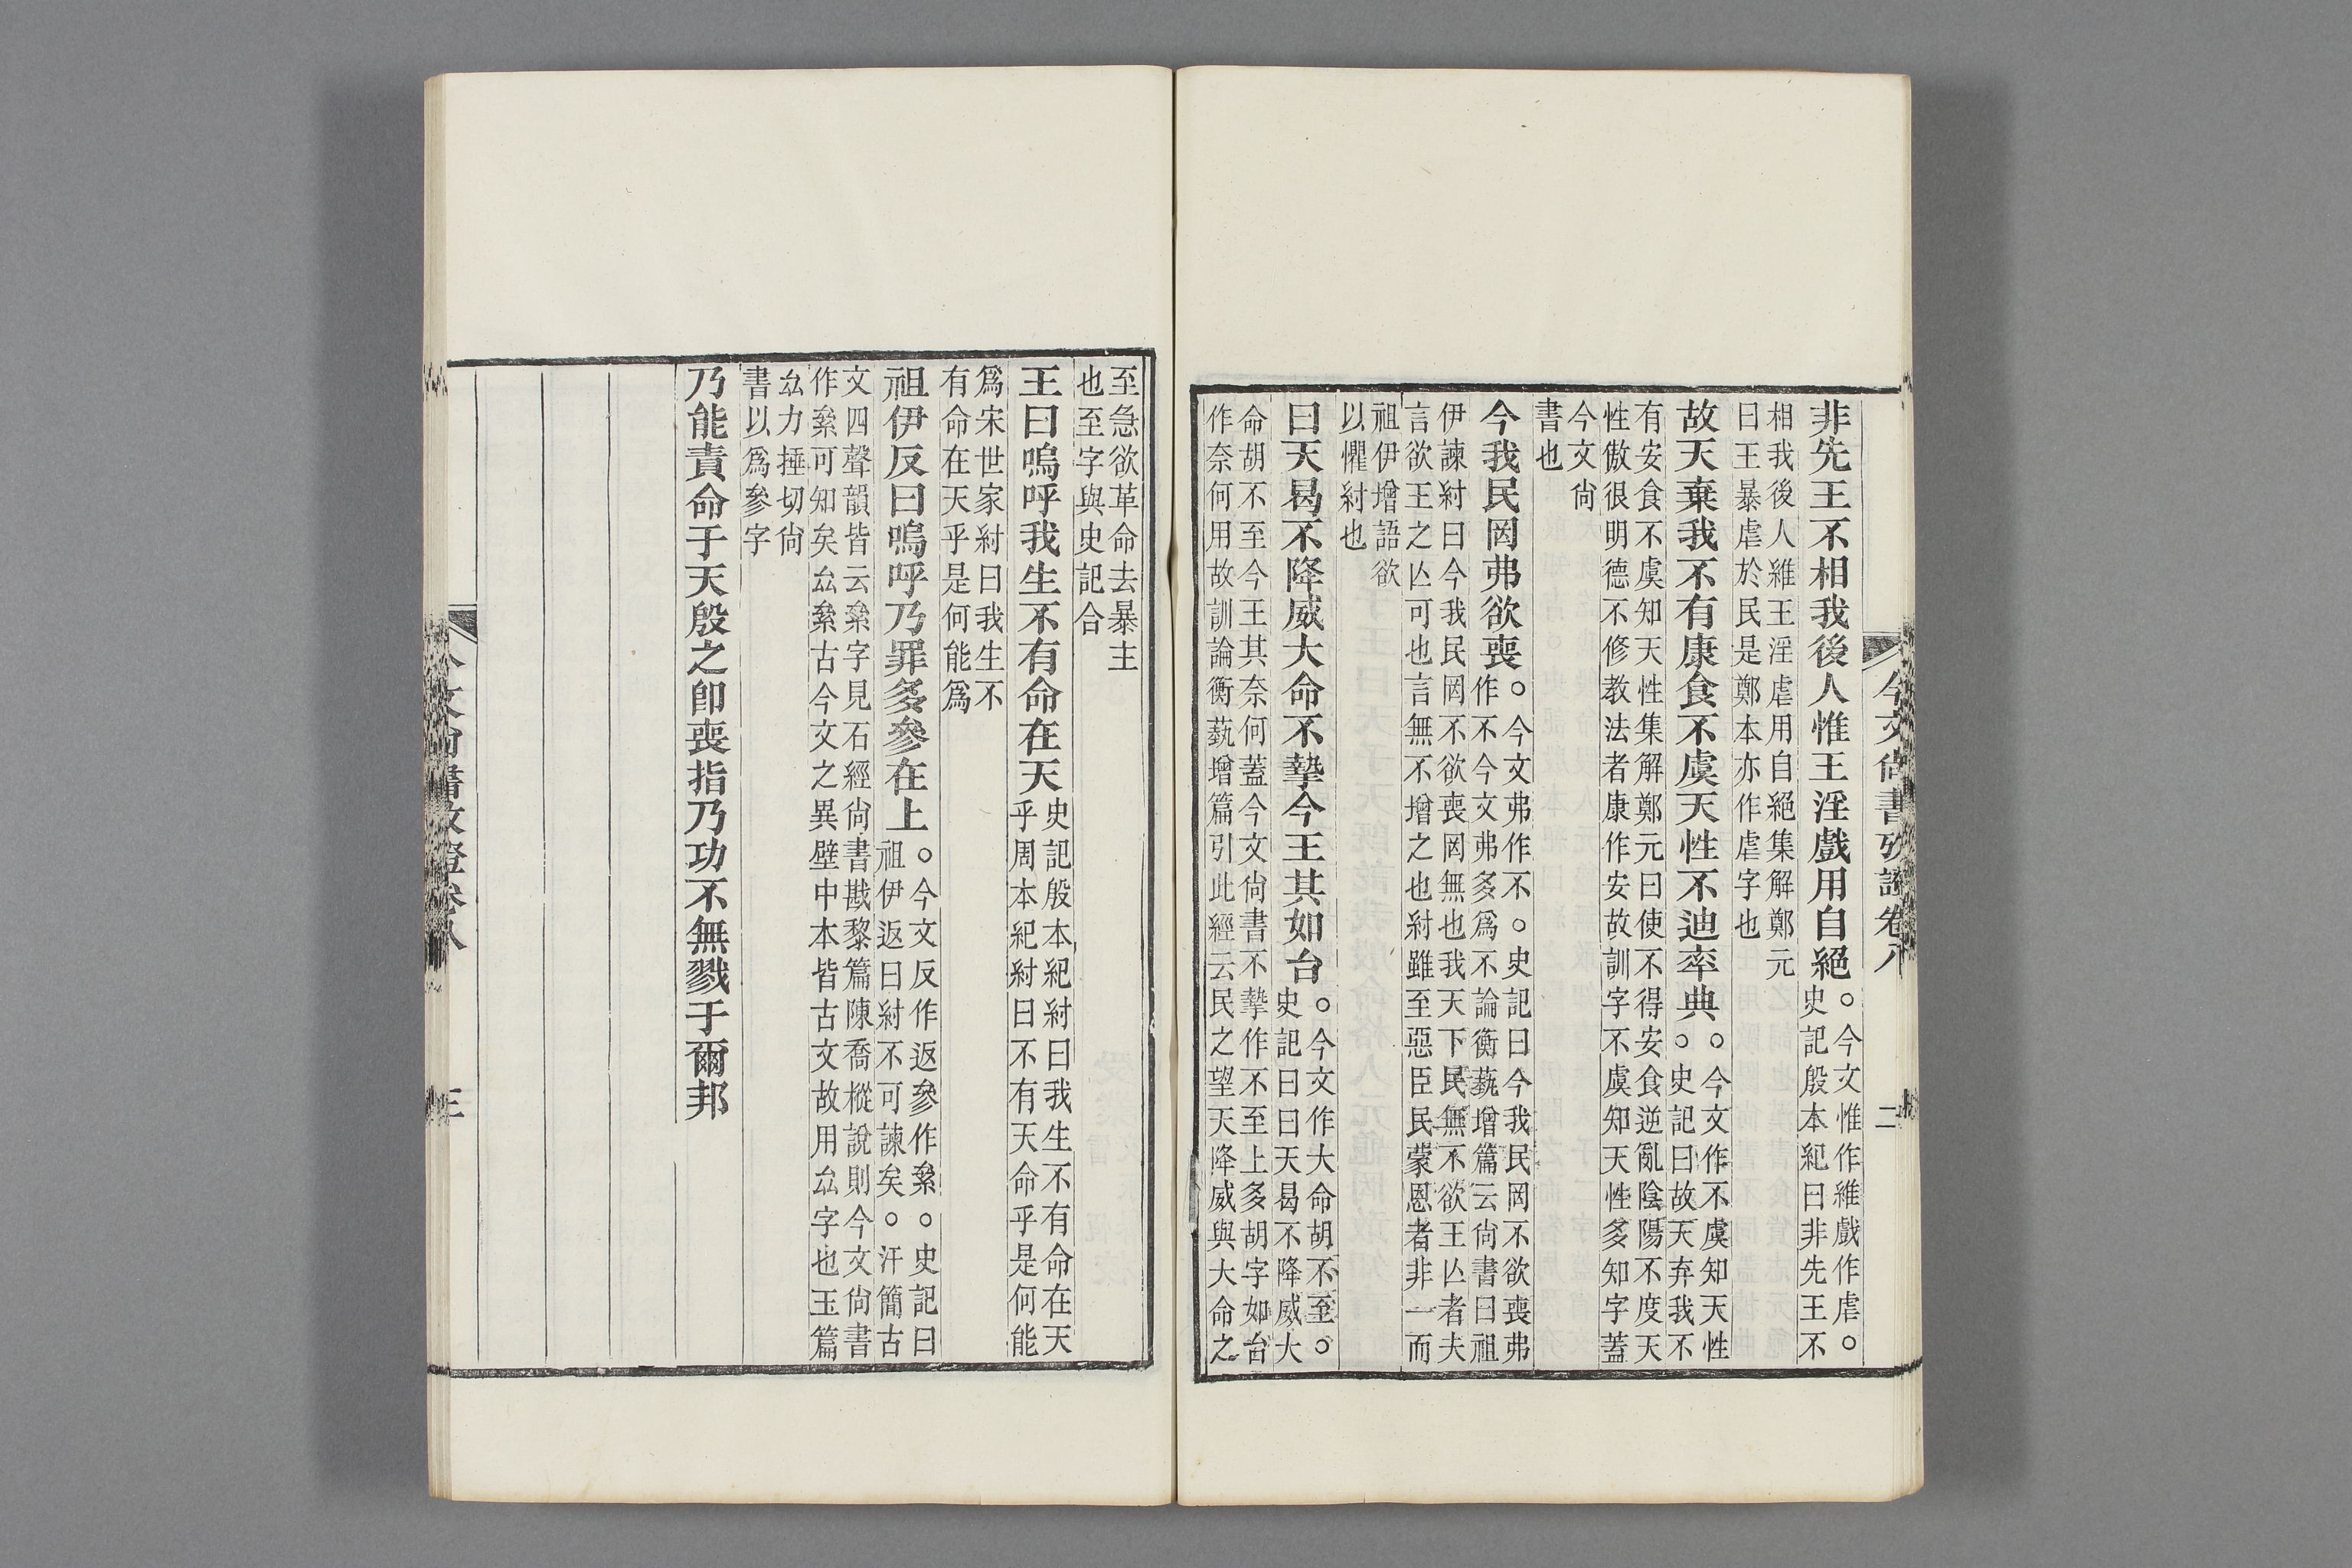 今文尚書攷證卷八
二
非先王不相我後人惟王淫戲用自絕
○今文惟作維戲作虐○
史記殷本紀曰非先王不
相我後人維王淫虐用自絕集解鄭元
曰王暴虐於民是鄭本亦作虐字也
故天棄我不有康食不虞天性不迪率典
○今文作不虞知天性
○史記曰故天弃我不
有安食不虞知天性集解鄭元曰使不得安食逆亂陰陽不度天
性傲很明德不修教法者康作安故訓字不虞知天性多知字蓋
今文尚
書也
今我民罔弗欲喪
○今文弗作不○史記曰今我民罔不欲喪弗
作不今文弗多爲不論衡蓺增篇云尚書曰祖
伊諫紂曰今我民罔不欲喪罔無也我天下民無不欲王亾者夫
言欲王之亾可也言無不增之也紂雖至惡臣民蒙恩者非一而
祖伊增語欲
以懼紂也
曰天曷不降威大命不摯今王其如台
○今文作大命胡不至○
史記曰曰天曷不降威大
命胡不至今王其奈何蓋今文尚書不摯作不至上多胡字如台
作奈何用故訓論衡蓺增篇引此經云民之望天降威與大命之
至急欲革命去暴主
也至字與史記合
王曰嗚呼我生不有命在天
史記殷本紀紂曰我生不有命在天
乎周本紀紂曰不有天命乎是何能
爲宋世家紂曰我生不
有命在天乎是何能爲
祖伊反曰嗚呼乃罪多參在上
○今文反作返參作絫○史記曰
祖伊返曰紂不可諫矣○汗簡古
文四聲韻皆云絫字見石經尚書戡黎篇陳喬樅說則今文尚書
作絫可知矣厽絫古今文之異壁中本皆古文故用厽字也玉篇
厽力捶切尚
書以爲參字
乃能責命于天殷之卽喪指乃功不無戮于爾邦
今文尚書攷證卷八
三